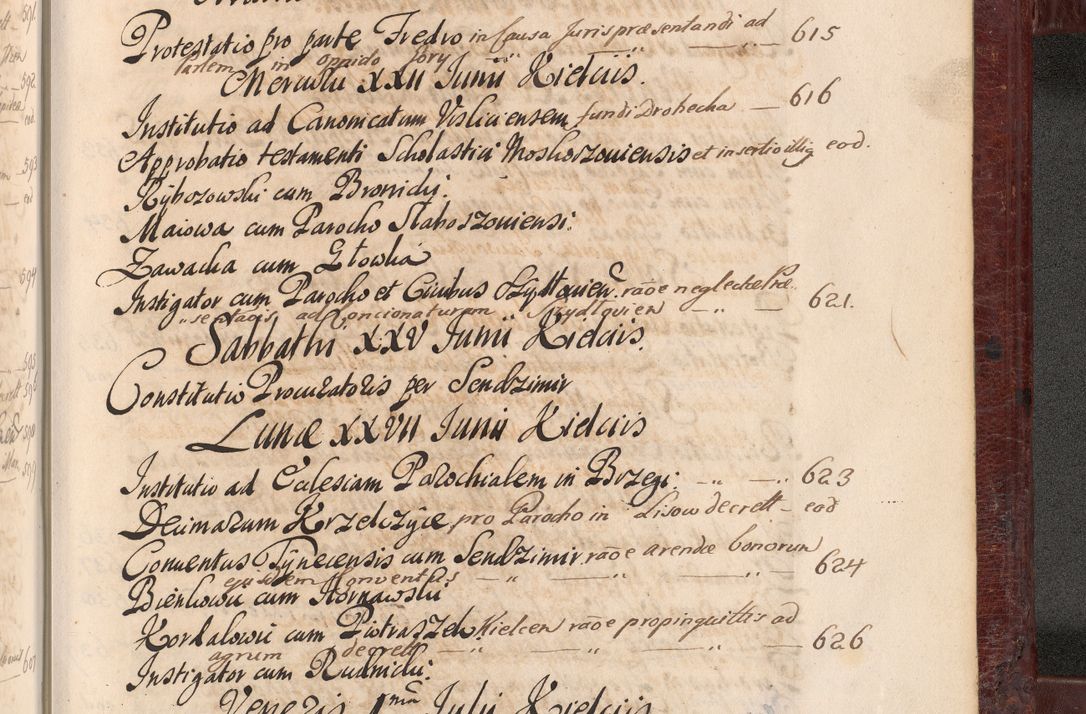 Protestatio pro parte Fredro in causa Juris præsentandi ad 615
partem in oppido Jory
Mercurii XXII Junii Kielciis.
Institutio ad Canonicatum Visliciensem fundi Drohecha — 616
Approbatio testamenti Scholastici Moskorzouiensis et insertio illig eod.
Rybozowski cum Bronicki:
Maiowa cum Parocho Slaboszouiensi:
Zawacka cum Głowka
Instigator cum Parocho et Ciuibus Szydlouien. raõe neglectæ Præ
„sentaõis ad Concionaturam Szydlovien — „ — 621.
Sabbathi XXV Junii Kielciis.
Constitutio Procuratoris per Sendzimir
Lunæ XXVII Junii Kielciis
Institutio ad Ecclesiam Parochialem in Brzegi: - „ —„. 623
Decimarum Krzelczyce pro Parocho in Lisow decrett — eod
Conuentus Tynecensis cum Sendzimir. raõe arendæ bonorum
ejusdem Conventus — „ — „ — „ — 624
Bienkowii cum Kornawski
Kordalowii cum Piotraszek Kielcen raõe propinquittis ad
agrum decrett — „ — „ — 626
Instigator cum Rudnicki:
Veneris 1mã Julii Kielciis